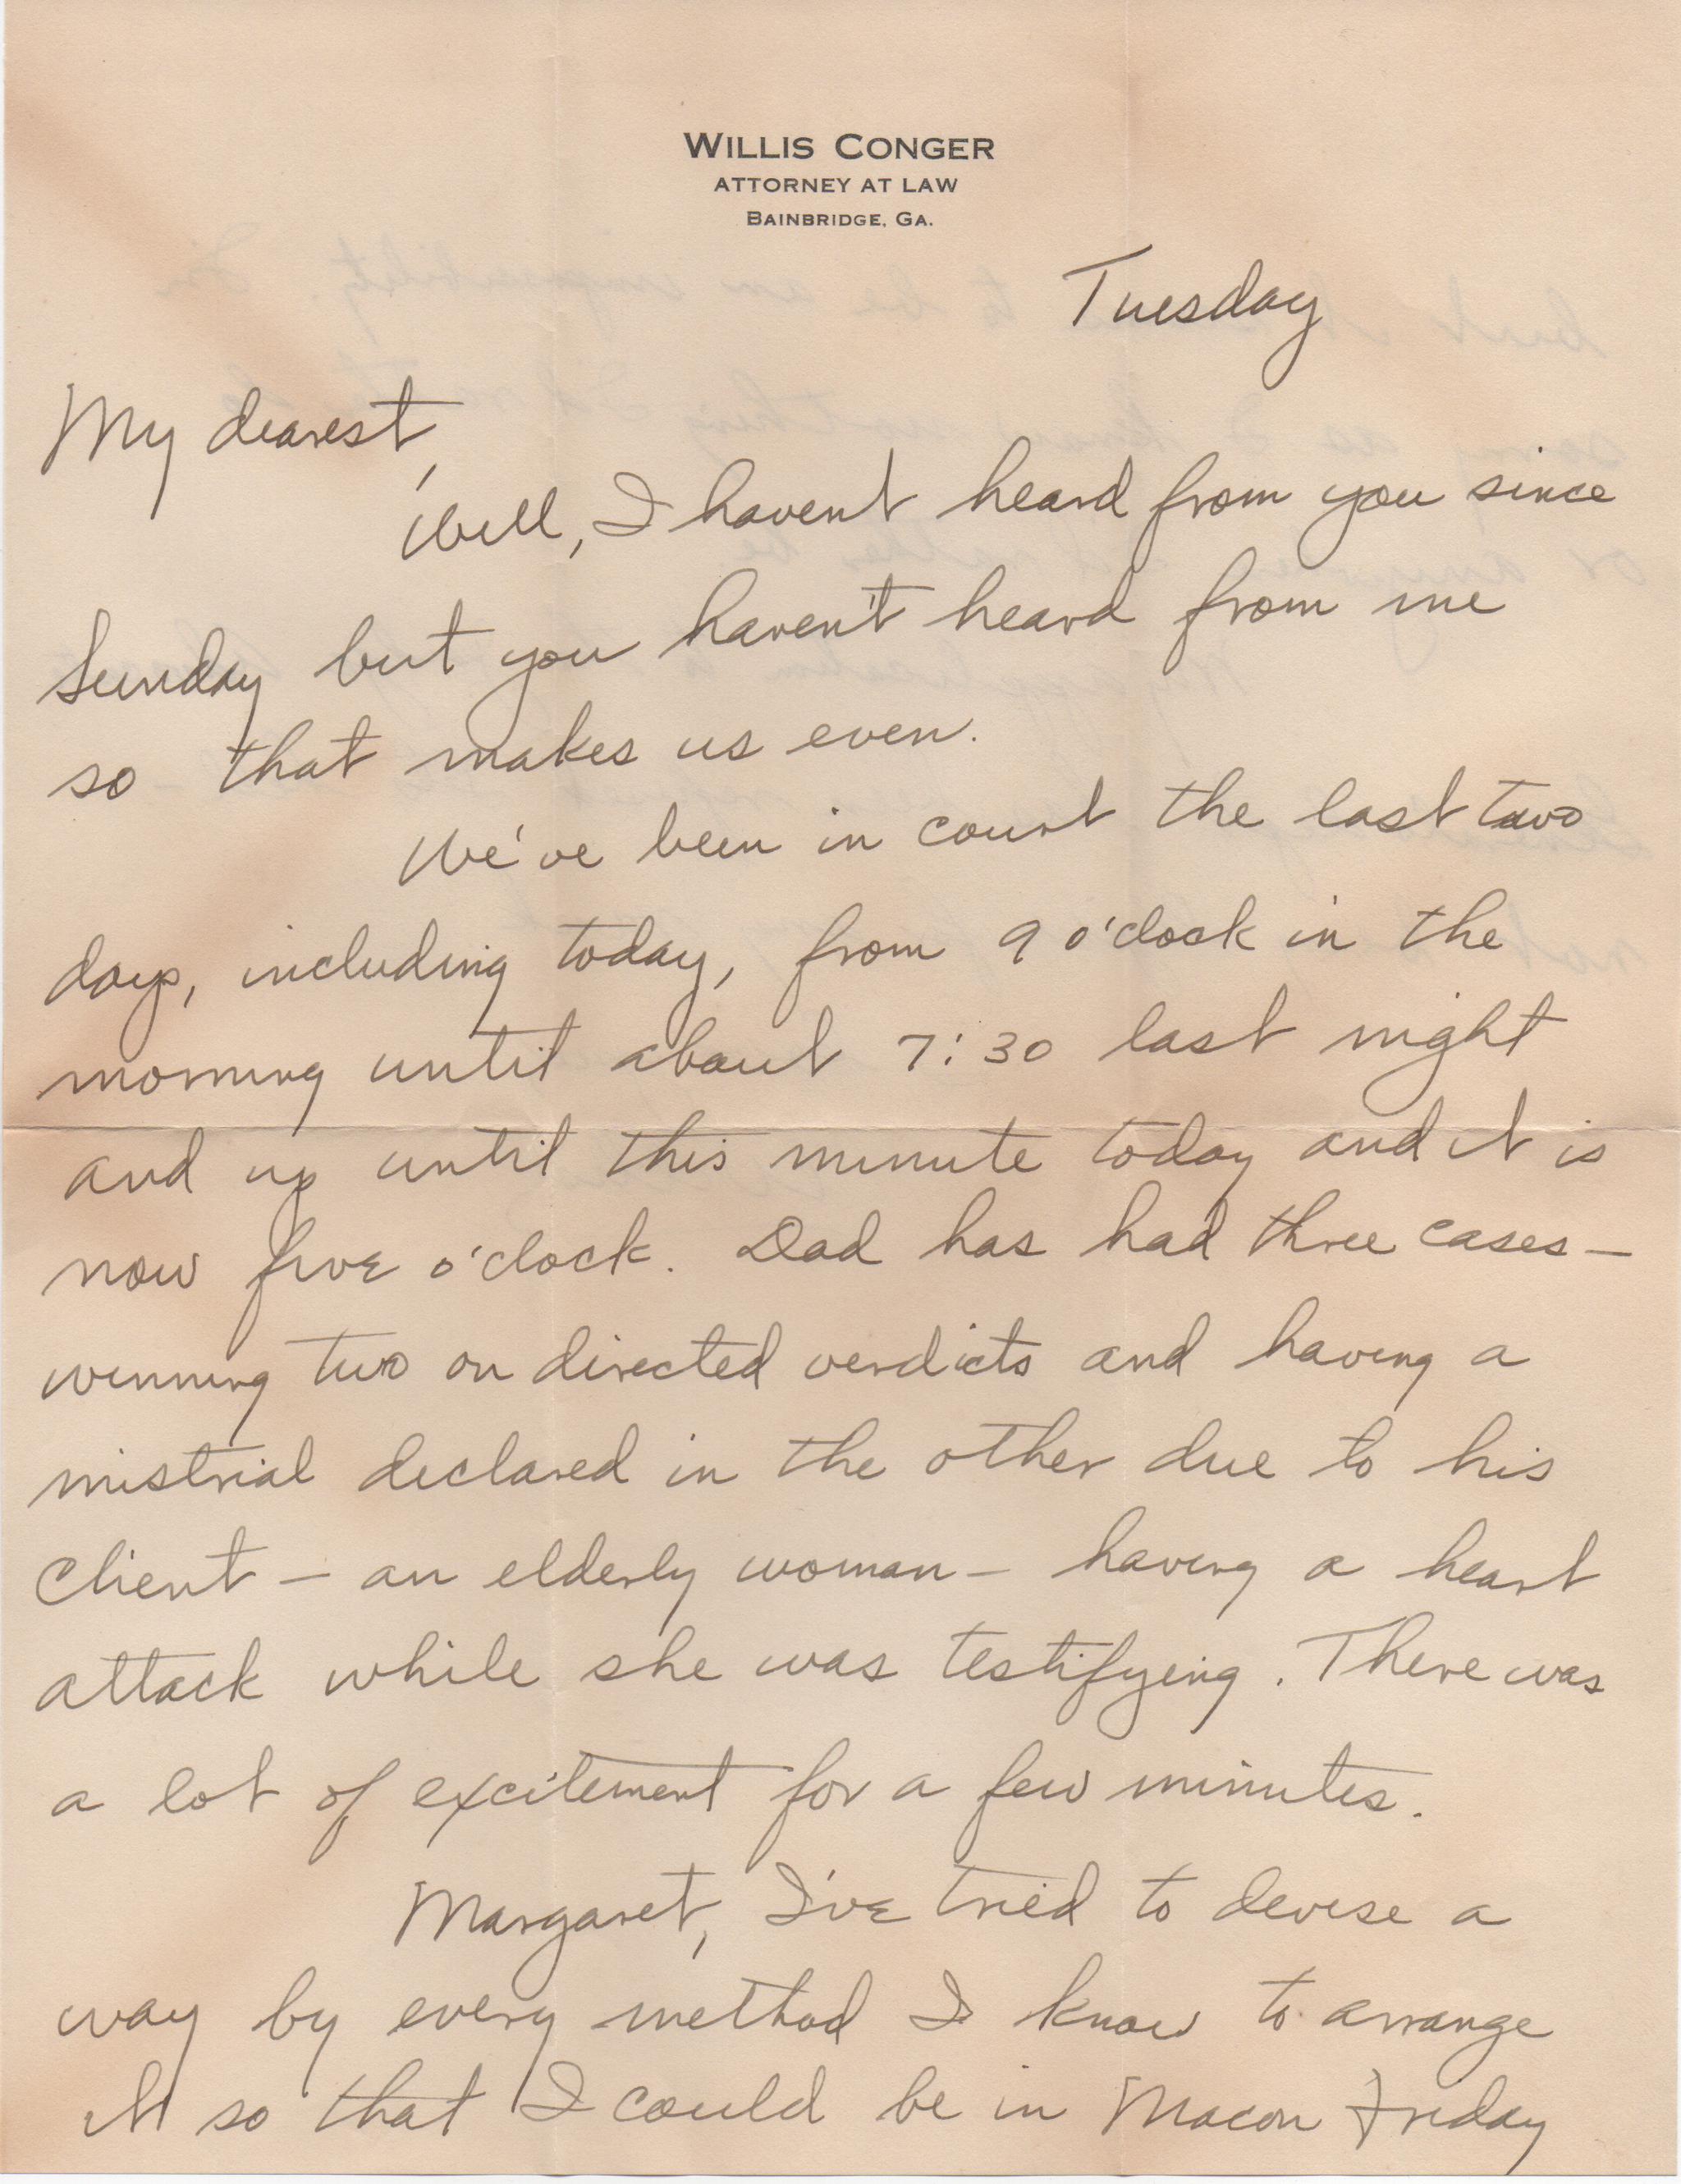 WILLIS CONGER
ATTORNEY AT LAW
BAINBRIDGE, GA.
Tuesday
My dearest,
Well, I havent heard from you since
Sunday but you haven't heard from me
so that makes us even.
We've been in court the last two
days, including today, from 9 o'clock in the
morning until about 7:30 last night
and up until this minute today and it is
now five o'clock. Dad has had three cases—
winning two on directed verdicts and having a
mistrial declared in the other due to his
client — an elderly woman — having a heart
attack while she was testifying. There was
a lot of excitement for a few minutes.
Margaret, I've tried to devise a
way by every method I know to arrange
it so that I could be in Macon Friday